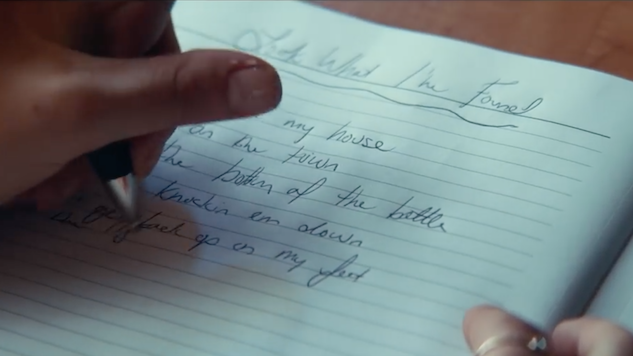 Look What I've Found
my house
on the town
the bottom of the bottle
Knockin em down
back up on my feet